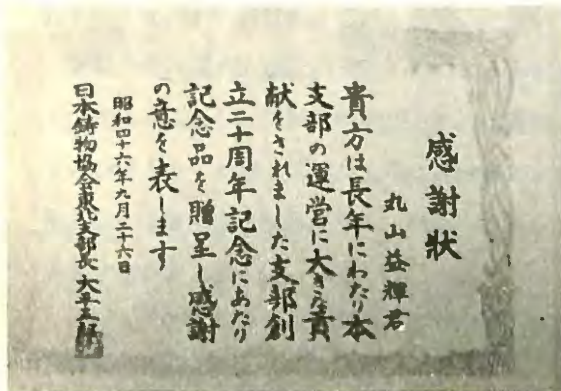 感謝状
丸山益輝君
貴方は長年にわたり本
支部の運営に大きな貢
献をされました支部創
立二十周年記念にあたり
記念品を贈呈し感謝
の意を表します
昭和四十六年九月二十六日
日本鋳物協会東北支部長 大平五郎